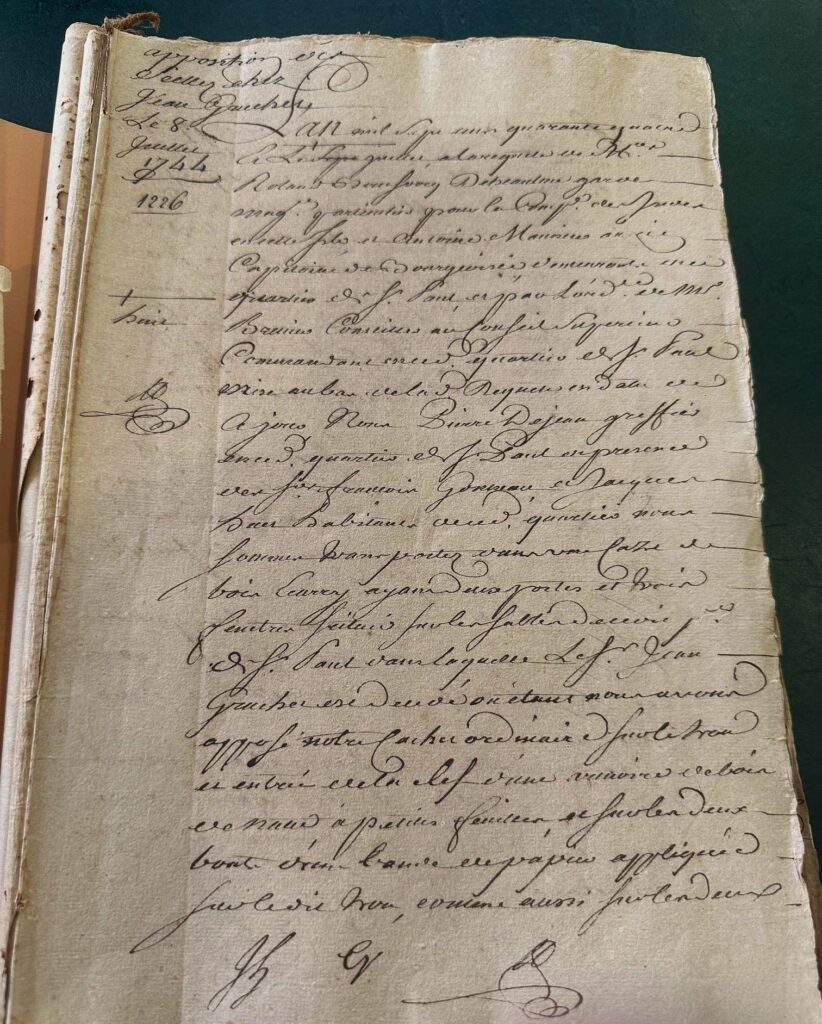 apposition des
scellez chez
Jean Gruchet
Le 8
Juillet
1744
1226
huit
L'an mil sept cent quarante quatre
le huit juillet, a la requete de Mrs
Roland garde
magn. pour la Comp. des Indes
en cette Isle et Antoine
Capitaine de Bourgeoisie demeurants en ce
quartier de St. Paul, et par l'ord.ce de Mr.
Brenier Conseiller au Conseil Superieur
Commandant aud. quartier de St Paul
mise au bas de lad. Requete en datte de
ce jour Nous Pierre Dejean greffier
aud. quartier de St Paul en presence
des Srs. francois Gonneau et Jacques
habitants dud. quartier nous
sommes transportez dans une Caze de
bois Equarry ayant deux portes et trois
fenetres scituée sur les sables dudit
de St. Paul dans laquelle Le Sr. Jean
Gruchet est decedé ou étant nous avons
apposé notre Cachet ordinaire sur le trou
et entrée de la clef d'une armoire de bois
de natte à petites feuilles et sur les deux
bouts d'une bande de papier appliquée
sur ledit trou, comme aussi sur les deux